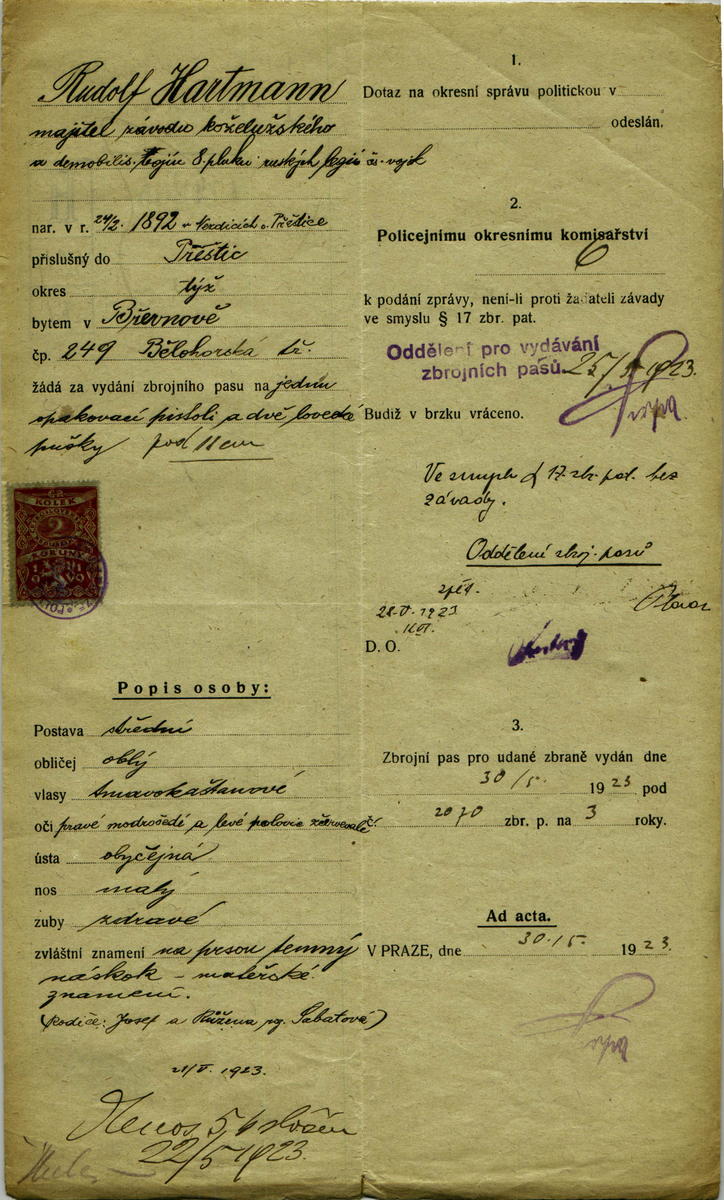 Rudolf Hartmann
majitel závodu koželužského
a demobilis. legiín 8. pluku ruských legií čs. vojsk
nar. v r. 24/2. 1892 v Nezdicích o. Přeštice
příslušný do Přeštic
okres týž
bytem v Břevnově
čp. 249 Bělohorská tř.
žádá za vydání zbrojního pasu na jednu
opakovací pistoli a dvě lovecké
pušky pod 11 cm
KOLEK
2
KORUNY
Popis osoby:
Postava střední
obličej oblý
vlasy tmavokaštanové
oči pravé modrošedé a levé polovic
ústa obyčejná
nos malý
zuby zdravé
zvláštní znamení na prsou temný
náskok – mateřské
znamení.
(rodiče: Josef a Růžena roz. Sabatová)
21/V. 1923.
22/5 1923.
1.
Dotaz na okresní správu politickou v
odeslán.
2.
Policejnímu okresnímu komisařství
6
k podání zprávy, není-li proti žadateli závady
ve smyslu § 17 zbr. pat.
Oddělení pro vydávání
zbrojních pasů.
25/5 1923.
Budiž v brzku vráceno.
Ve smyslu § 17. zbr. pat. bez
závady.
Oddělení zbroj. pasů
zpět.
28.V.1923
D. O.
3.
Zbrojní pas pro udané zbraně vydán dne
30/5. 1923 pod
č. 2070 zbr. p. na 3 roky.
Ad acta.
V PRAZE, dne 30.5. 1923.